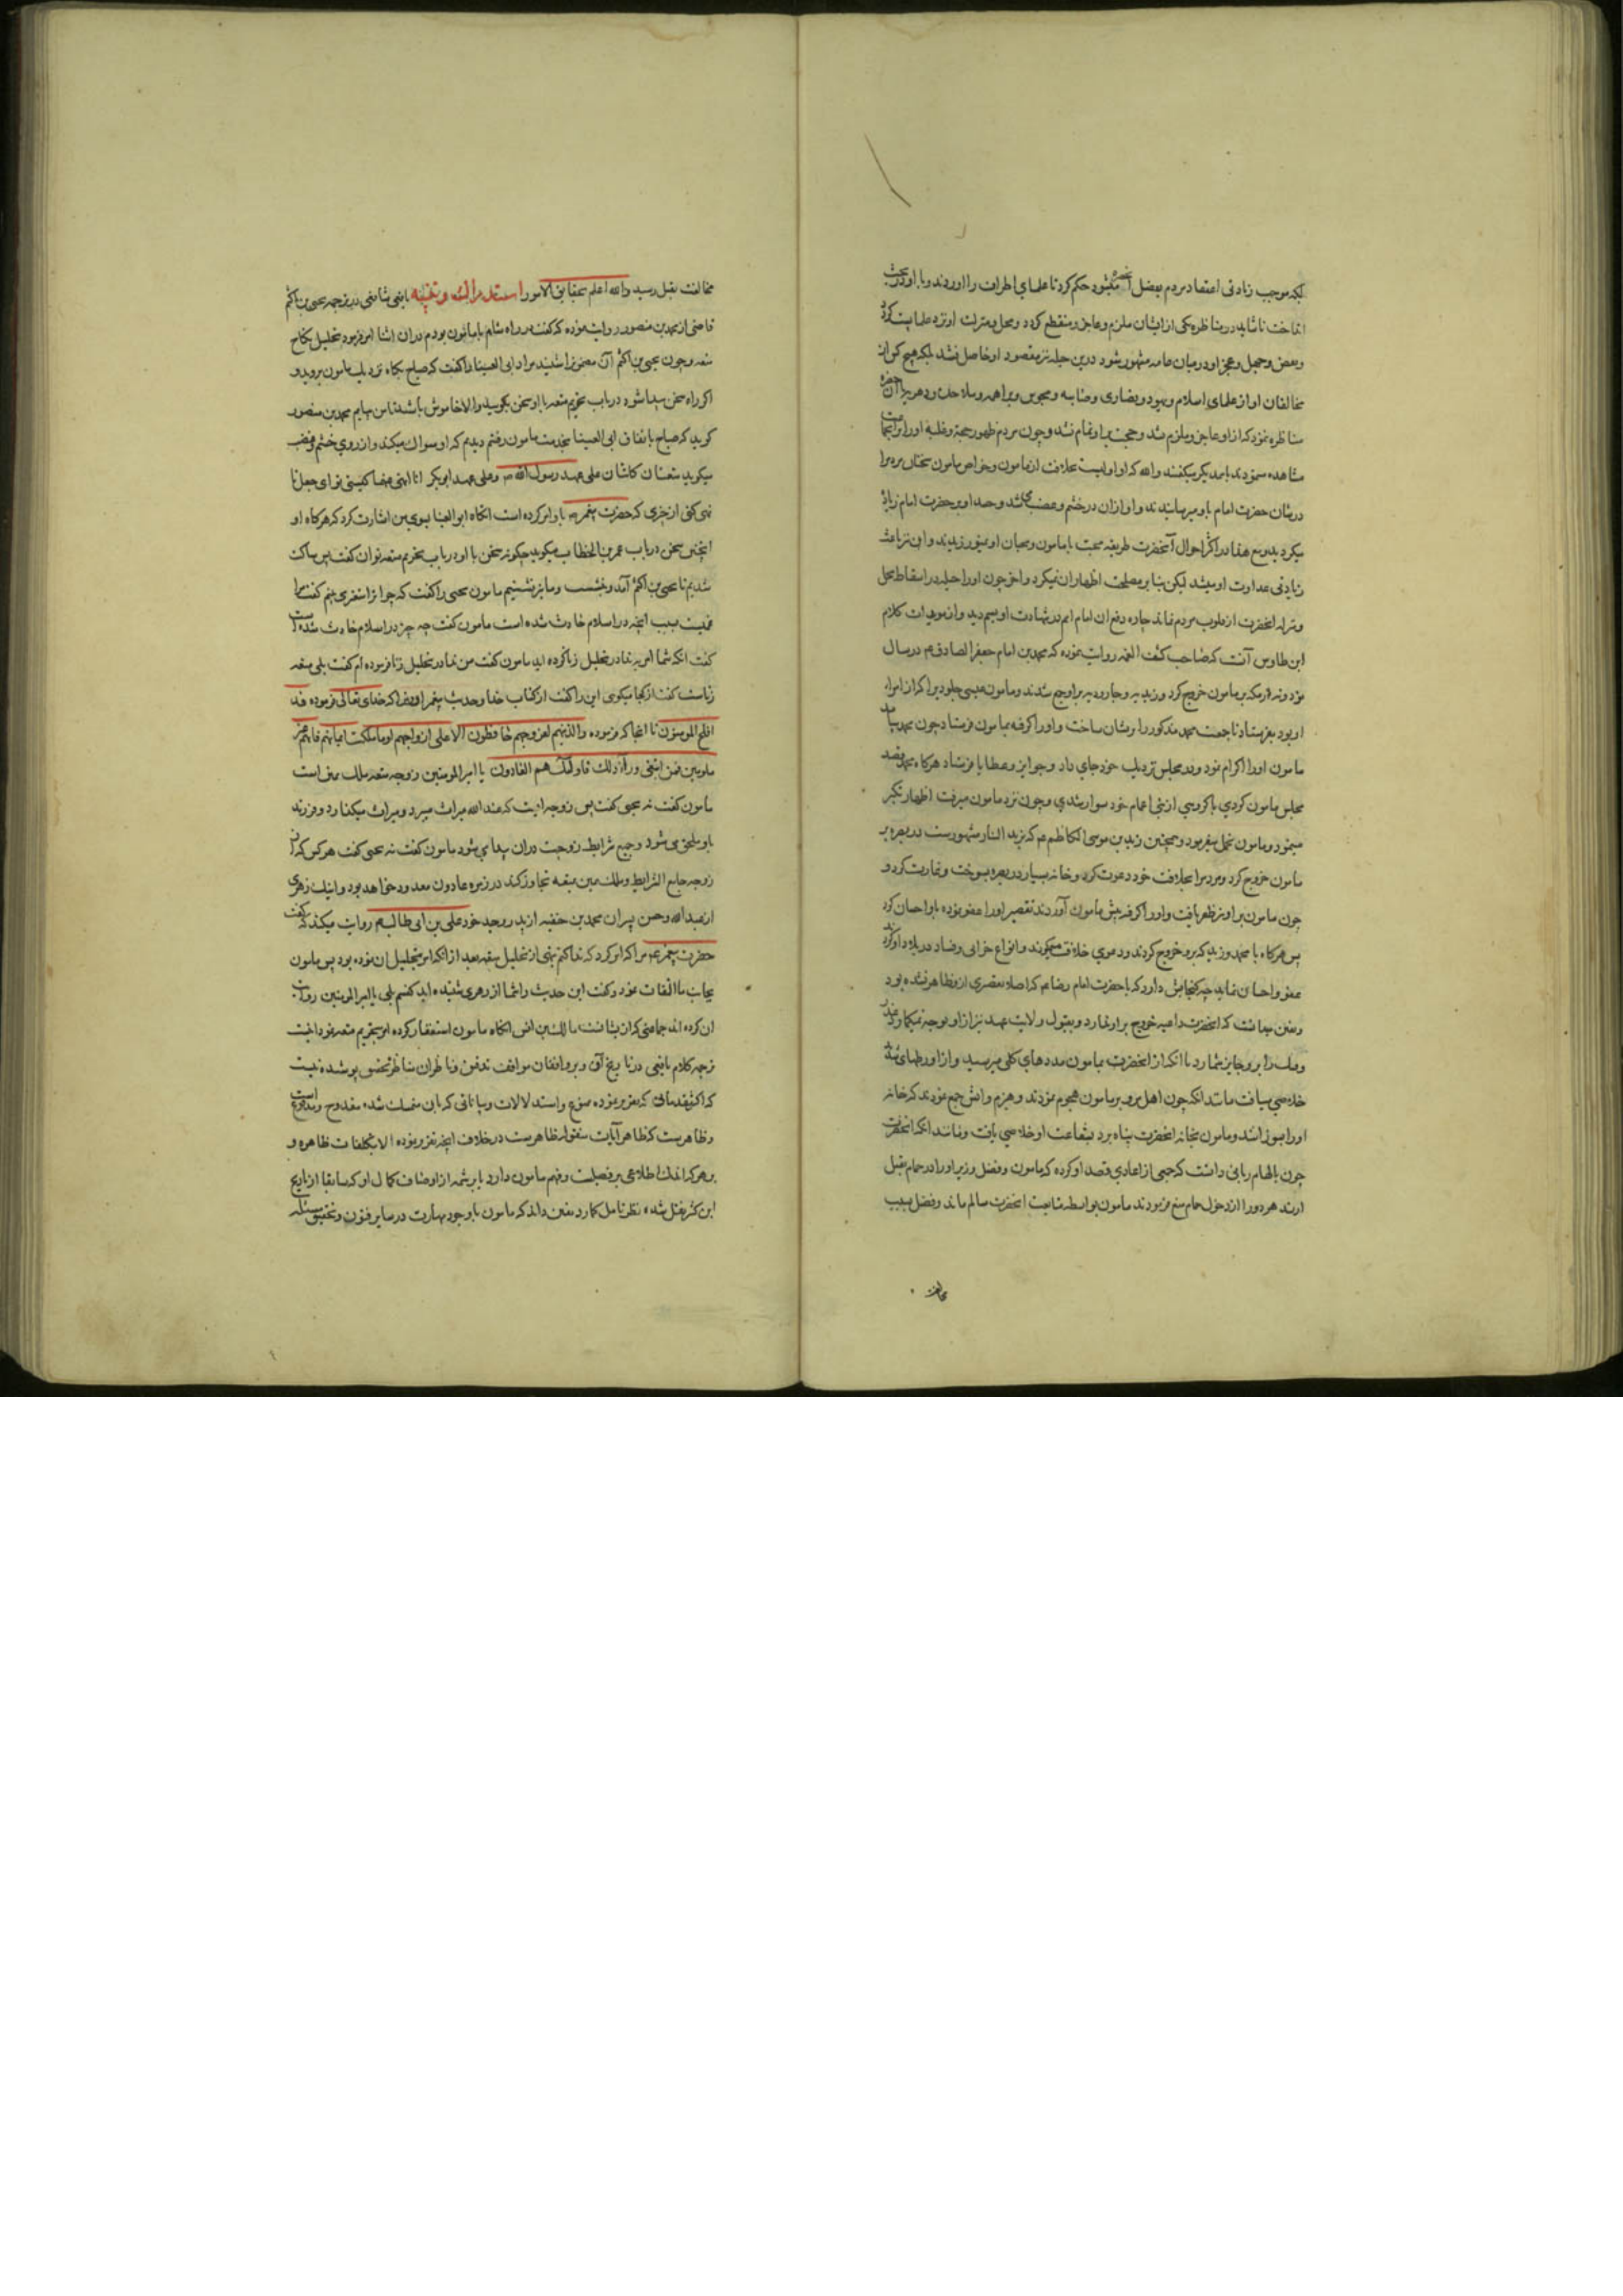 بلکه موجب زیادتی اعتقاد مردم بفضل آنحضرت میشود حکم کرد تا علمای اطراف را اوردند و با او در بحث
انداخت تا شاید در مناظره یکی از ایشان ملزم و عاجز و منقطع کردد و محل و منزلت او نزد علما پست کردد
و نقص و جهل و عجز او در میان عامه مشهور شود درین حیله نیز مقصود او حاصل نشد بلکه هیچ کس از
مخالفان او از علمای اسلام و یهود و نصاری و صابیه و مجوس و براهمه و ملاحده و دهریه با آن حضرت
مناظره ننمود که از او عاجز و ملزم نشد و حجت بر او تمام نشد و چون مردم ظهور حجة و غلبهٔ او را بر اینها
مشاهده مینمودند با یکدیگر میکفتند والله که او اولیست بخلافت از مامون و خواص مامون سخنان مردم را
در شان حضرت امام باو میرسانیدند و او ازان در خشم و غضب می شد و حسد او بر حضرت امام زیاد
میکردید و مع هذا در اکثر احوال آنحضرت طریقه محبت با مامون و محبان او نمیورزیدند و این نیز باعث
زیادتی عداوت او میشد لیکن بنا بر مصلحت اظهار ان نمیکرد و اخر چون او را حیله در اسقاط محل
و منزله انحضرت از قلوب مردم نماند چاره دفع ان امام امم در شهادت او بسم دید و از مویدات کلام
ابن طاوس آنست که صاحب کشف الغمه روایت نموده که محمد بن امام جعفر الصادق ع م در سال
نود و نه از مکه بر مامون خروج کرد و زیدیه و جارودیه بر او جمع شدند و مامون عیسی جلودی را که از امرای
او بود بفرستاد تا جمعیت محمد مذکور را پریشان ساخت و او را کرفته بمامون فرستاد چون محمد بیامد
مامون او را اکرام نمود و در مجلس نزدیک خود جای داد و جوایز و عطایا فرستاد هرکاه محمد قصد
مجلس مامون کردی با کروهی از بنی اعمام خود سوار شدی و چون نزد مامون میرفت اظهار تکبر
مینمود و مامون تحمل میفرمود و همچنین زید بن موسی الکاظم ع م که بزید النار مشهورست در بصره بر
مامون خروج کرد و مردم را بخلافت خود دعوت کرد و خانه بسیار در بصره بسوخت و غارت کرد و
چون مامون بر او نیز ظفر یافت و او را کرفته پیش مامون آوردند تقصیر او را عفو نموده باو احسان کرد
پس هرکاه با محمد و زید که برو خروج کردند و دعوی خلافت میکردند و انواع خرابی و فساد در بلاد او کردند
عفو و احسان نماید چه کنجایش دارد که با حضرت امام رضا ع م که اصلا تقصیری از و ظاهر نشده بود
و یقین میدانست که انحضرت داعیه خروج بر او ندارد و بقبول ولایت عهد نیز از او توجه نمیکارد غدر
و مکر را برو جایز شمارد با انکه از انحضرت بمامون مددهای کلی میرسید و از او رطهای شدید
خلاصی میافت مانند انکه چون اهل مرو بر مامون هجوم نمودند و هیزم و آتش جمع نمودند که خانه
او را بسوزانند و مامون بخانه انحضرت پناه برد بشفاعت او خلاصی یافت و مانند انکه انحضرت
چون بالهام ربانی دانست که جمعی از اعادی قصد او کرده که مامون و فضل وزیر او را در حمام بقتل
ارند هر دو را از دخول حمام منع فرمودند مامون بواسطه متابعت انحضرت سالم ماند و فضل بسبب
مخالفت
مخالفت بقتل رسید والله اعلم بحقایق الامور استدراک و تنبیه یافعی شافعی در ترجمه یحیی بن اکثم
قاضی از محمد بن منصور روایت نموده که کفت در راه شام با مامون بودم دران اثنا امر فرمود بتحلیل نکاح
متعه و چون یحیی بن اکثم آن مضمون را شنید مرا و ابی العینا را کفت که صباح بکاه نزدیک مامون بروید و
اکر راه سخن پیدا شود در باب تحریم متعه با او سخن بکویید و الا خاموش باشید تا من بیایم محمد بن منصور
کوید که صباح باتفاق ابی العینا بخدمت مامون رفتم دیدیم که او مسواک میکند و از روی خشم و غضب
میکوید متعتان کانتا علی عهد رسول الله ص و علی عهد ابوبکر انا انهی عنهما کیستی تو ای جعل تا
نهی کنی از چیزی که حضرت پیغمبر ص باو امر کرده است انکاه ابوالعینا بسوی من اشارت کرد که هرکاه او
اینچنین سخن در باب عمر بن الخطاب میکوید چکونه سخن با او در باب تحریم متعه توان کفت پس ساکت
شدیم تا یحیی بن اکثم آمد و بنشست و ما نیز نشستیم مامون یحیی را کفت که چرا ترا متغیر می بینم کفت مرا
غمیست بسبب انچه در اسلام حادث شده است مامون کفت چه چیز در اسلام حادث شده است
کفت انکه شما امر بندا در تحلیل زنا کرده اید مامون کفت من ندا در تحلیل زنا فرموده ام کفت بلی متعه
زناست کفت از کجا میکویی این را کفت از کتاب خدا و حدیث پیغمبر او چرا که خدای تعالی فرموده قد
افلح المومنون تا انجا که فرموده والذینهم لفروجهم حافظون الا علی ازواجهم او ما ملکت ایمانهم فانهم غیر
ملومین فمن ابتغی ورآء ذلک فاولئک هم العادون یا امیر المومنین زوجه متعه ملک یمین است
مامون کفت نه یحیی کفت پس زوجه ایست که عند الله میراث میبرد و میراث میکذارد و فرزند
باو ملحق می شود و جمیع شرایط زوجیت دران پیدا می شود مامون کفت نه یحیی کفت هر کس که از
زوجه جامع الشرایط و ملک یمین بمتعه تجاوز کند در زمره عادون معدود خواهد بود و اینک زهری
از عبدالله و حسن پسران محمد بن حنفیه از پدر و جد خود علی بن ابی طالب ع م روایت میکند که کفت
حضرت پیغمبر ع م مرا که امر کرد که ندا کنم بنهی از تحلیل متعه بعد از انکه امر بتحلیل ان نموده بود پس مامون
بجانب ما التفات نمود و کفت این حدیث را شما از زهری شنیده اید کفتیم بلی یا امیر المومنین روایت
ان کرده اند جماعتی که از یشانست مالک بن انس انکاه مامون استغفار کرده امر بتحریم متعه نمود انتهت
ترجمه کلام یافعی در تاریخ آن و بر واقفان مواقف تدقیق و ناظران مناظر تحقیق پوشیده نیست
که اکثر مقدماتی که تقریر نموده ممنوع و استدلالات و بیاناتی که بان متمسک شده مقدوح و مدفوع است
و ظاهرست که ظاهر آیات منقوله ظاهرست در خلاف انچه تقریر نموده الا بتکلفات ظاهره و
بر هر که اندک اطلاعی بر فضیلت و فهم مامون دارد یا بر شمه از اوصاف کمال او که سابقا از تاریخ
ابن کثیر نقل شده نظر تامل کمارد یقین داند که مامون با وجود مهارت در سایر فنون و تحقیق مسئله